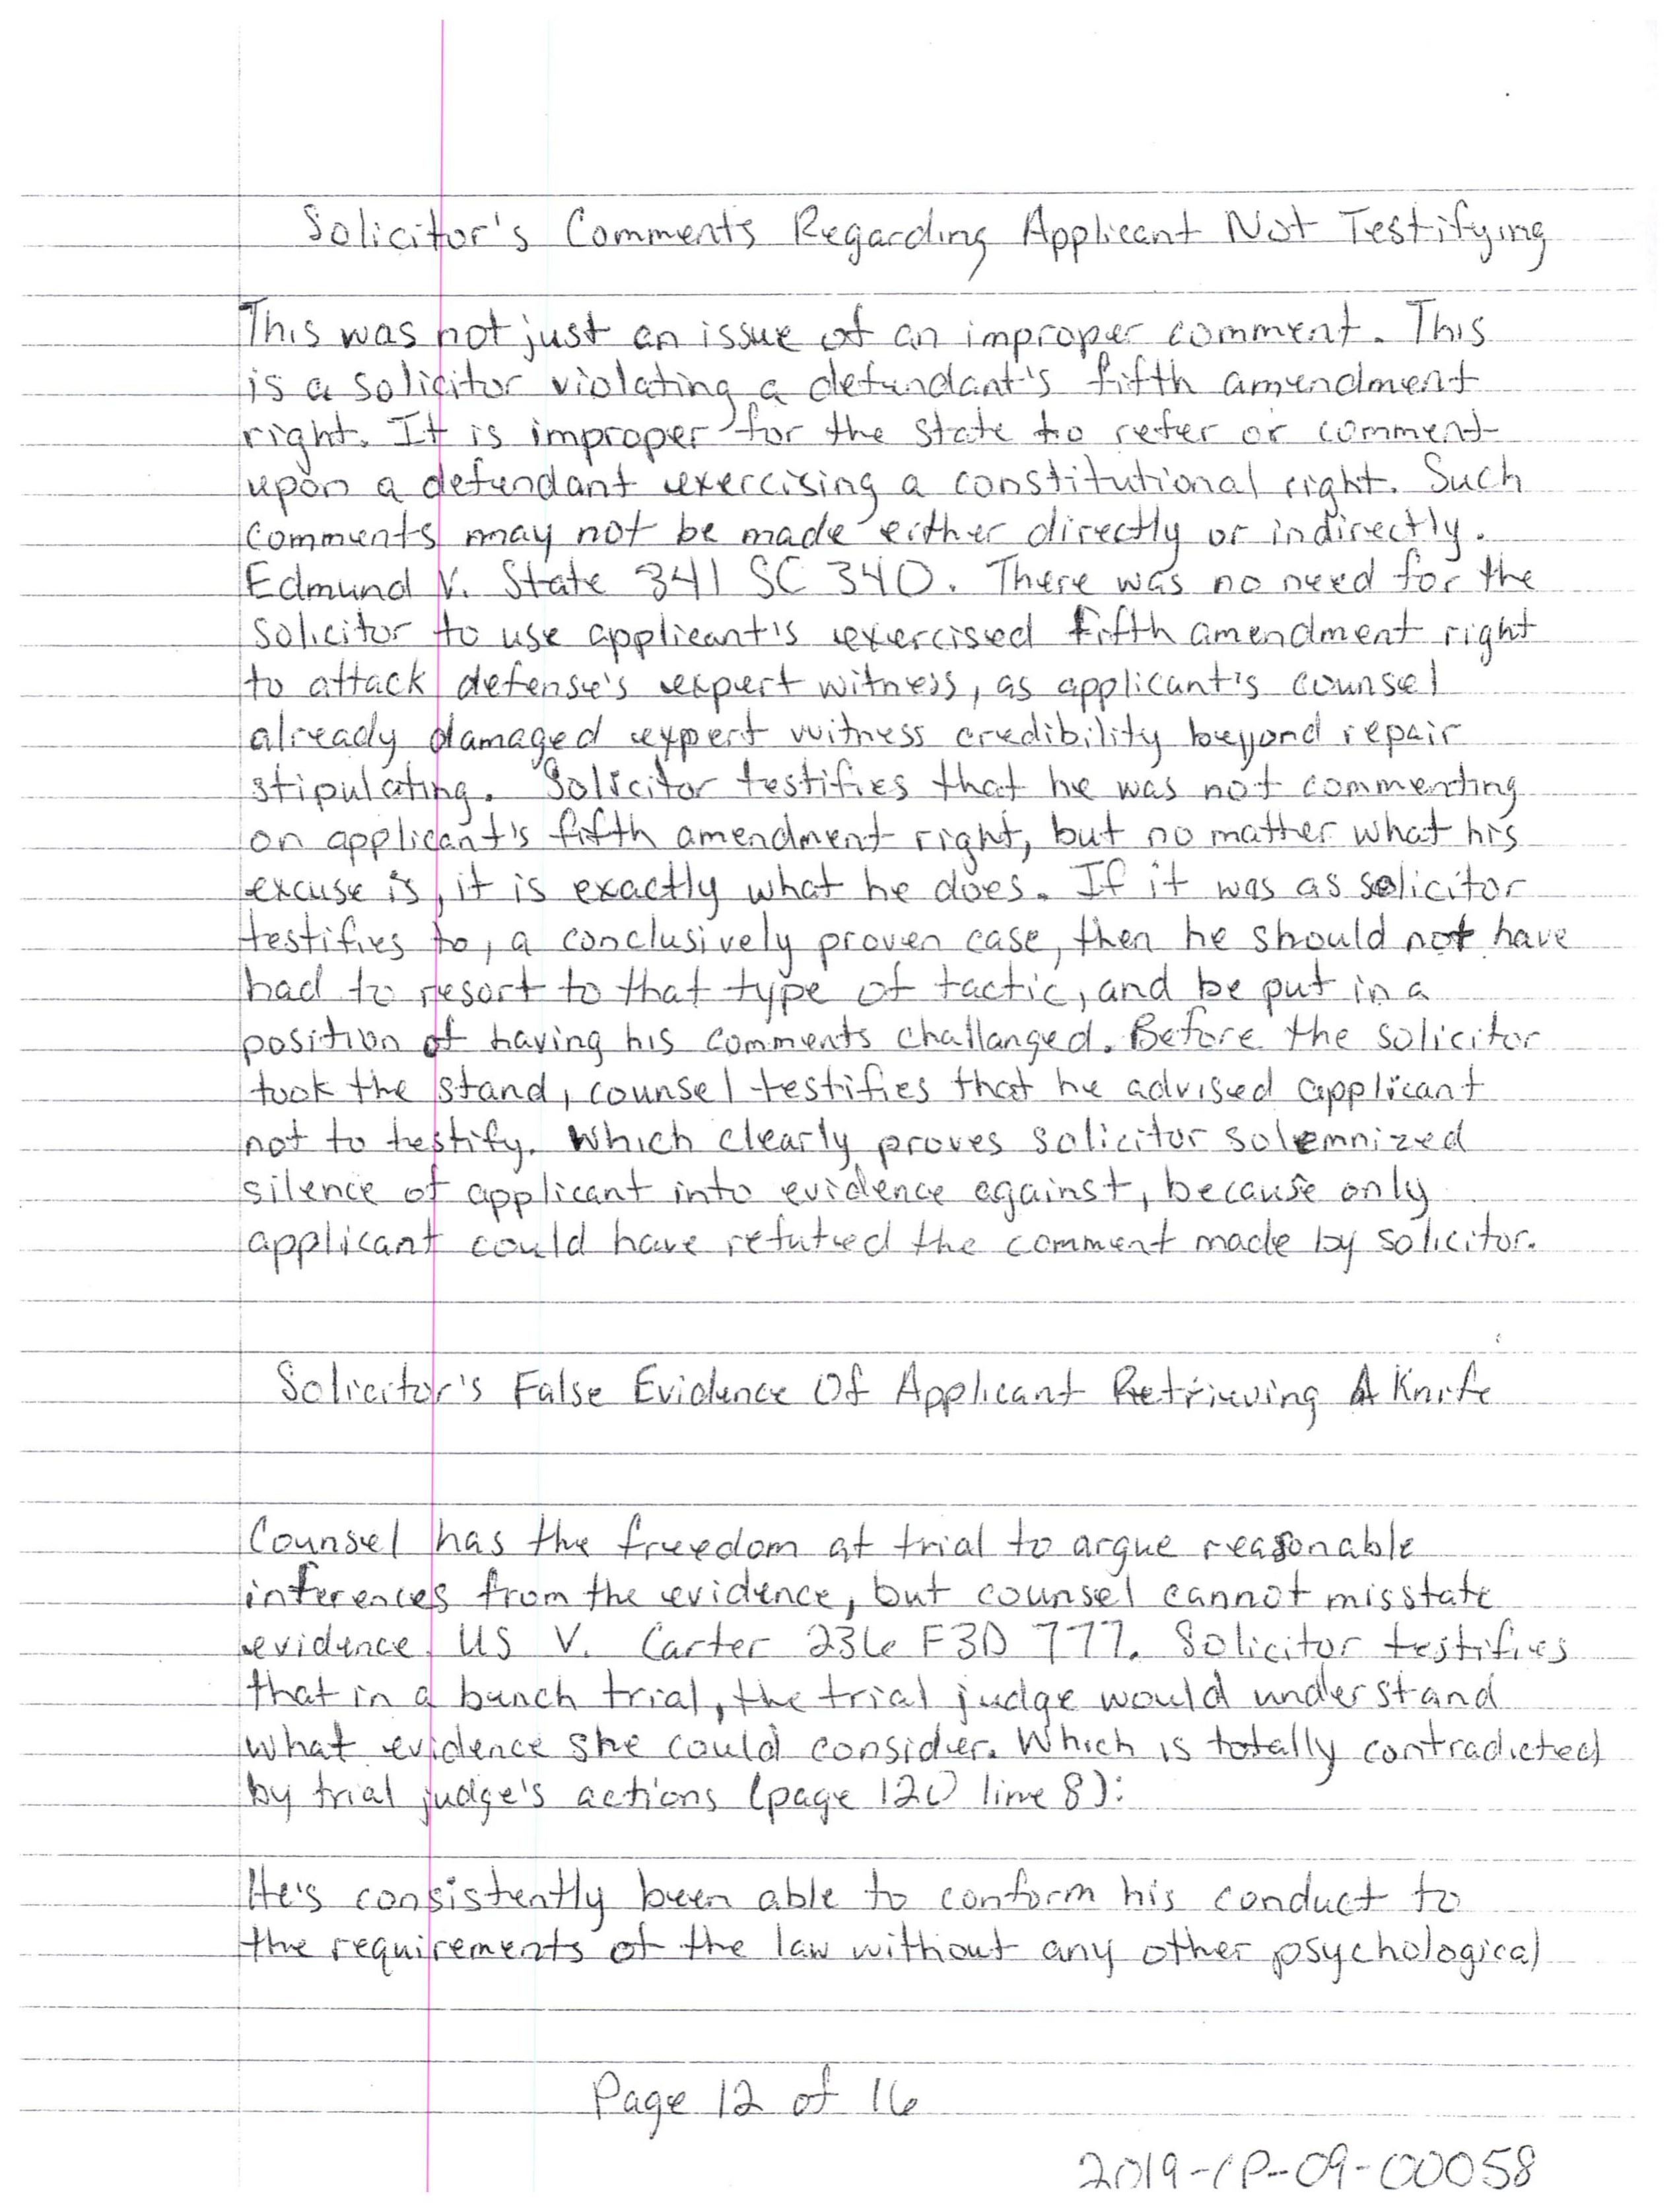 Solicitor's Comments Regarding Applicant Not Testifying
This was not just an issue of an improper comment. This
is a solicitor violating a defendant's fifth amendment
right. It is improper for the state to refer or comment
upon a defendant exercising a constitutional right. Such
comments may not be made either directly or indirectly.
Edmund V. State 341 SC 340. There was no need for the
solicitor to use applicant's exercised fifth amendment right
to attack defense's expert witness, as applicant's counsel
already damaged expert witness credibility beyond repair
stipulating. Solicitor testifies that he was not commenting
on applicant's fifth amendment right, but no matter what his
excuse is, it is exactly what he does. If it was as solicitor
testifies to, a conclusively proven case, then he should not have
had to resort to that type of tactic, and be put in a
position of having his comments challanged. Before the solicitor
took the stand, counsel testifies that he advised applicant
not to testify. Which clearly proves solicitor solemnized
silence of applicant into evidence against, because only
applicant could have refuted the comment made by solicitor.
Solicitor's False Evidence Of Applicant Retrieving A Knife
Counsel has the freedom at trial to argue reasonable
inferences from the evidence, but counsel cannot misstate
evidence. US V. Carter 236 F3D 777. Solicitor testifies
that in a bench trial, the trial judge would understand
what evidence she could consider. Which is totally contradicted
by trial judge's actions (page 120 line 8):
He's consistently been able to conform his conduct to
the requirements of the law without any other psychological
Page 12 of 16
2019-CP-09-00058